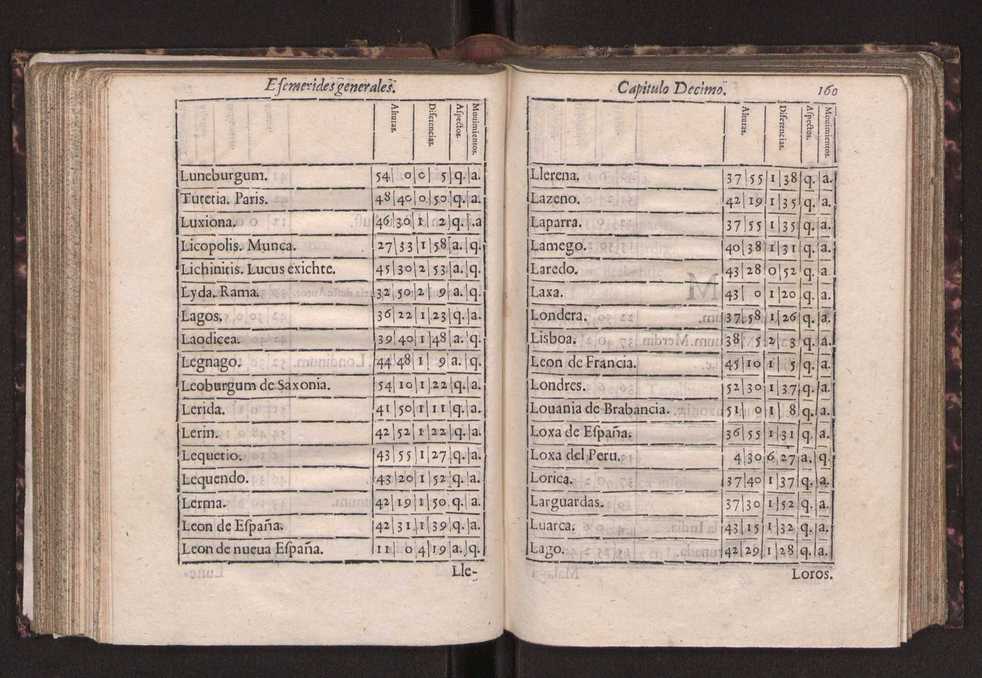 Efemerides generales.
Alturas. Diferencias. Aspectos. Mouimientos.
Luneburgum. 54 0 0 5 q. a.
Tutetia. Paris. 48 40 0 50 q. a.
Luxiona. 46 30 1 2 q. .a
Licopolis. Munca. 27 33 1 58 a. q.
Lichinitis. Lucus exichte. 45 30 2 53 a. q.
Lyda. Rama. 32 50 2 9 a. q.
Lagos. 36 22 1 23 q. a.
Laodicea. 39 40 1 48 a. q.
Legnago. 44 48 1 9 a. q.
Leoburgum de Saxonia. 54 10 1 22 q. a.
Lerida. 41 50 1 11 q. a.
Lerin. 42 52 1 22 q. a.
Lequetio. 43 55 1 27 q. a.
Lequendo. 43 20 1 52 q. a.
Lerma. 42 19 1 50 q. a.
Leon de España. 42 31 1 39 q. a.
Leon de nueua España. 11 0 4 19 a. q.
Lle-
Capitulo Decimo. 160
Alturas. Diferencias. Aspectos. Mouimientos.
Llerena. 37 55 1 38 q. a.
Lazeno. 42 19 1 35 q. a.
Laparra. 37 55 1 35 q. a.
Lamego. 40 38 1 31 q. a.
Laredo. 43 28 0 52 q. a
Laxa. 43 0 1 20 q. a.
Londera. 37 58 1 26 q. a.
Lisboa. 38 5 2 3 q. a.
Leon de Francia. 45 10 1 5 q. a.
Londres. 52 30 1 37 q. a.
Louania de Brabancia. 51 0 1 8 q. a.
Loxa de España. 36 55 1 31 q. a.
Loxa del Peru. 4 30 6 27 a. q.
Lorica. 37 40 1 37 q. a.
Larguardas. 37 30 1 52 q. a.
Luarca. 43 15 1 32 q. a.
Lago. 42 29 1 28 q. a.
Loros.